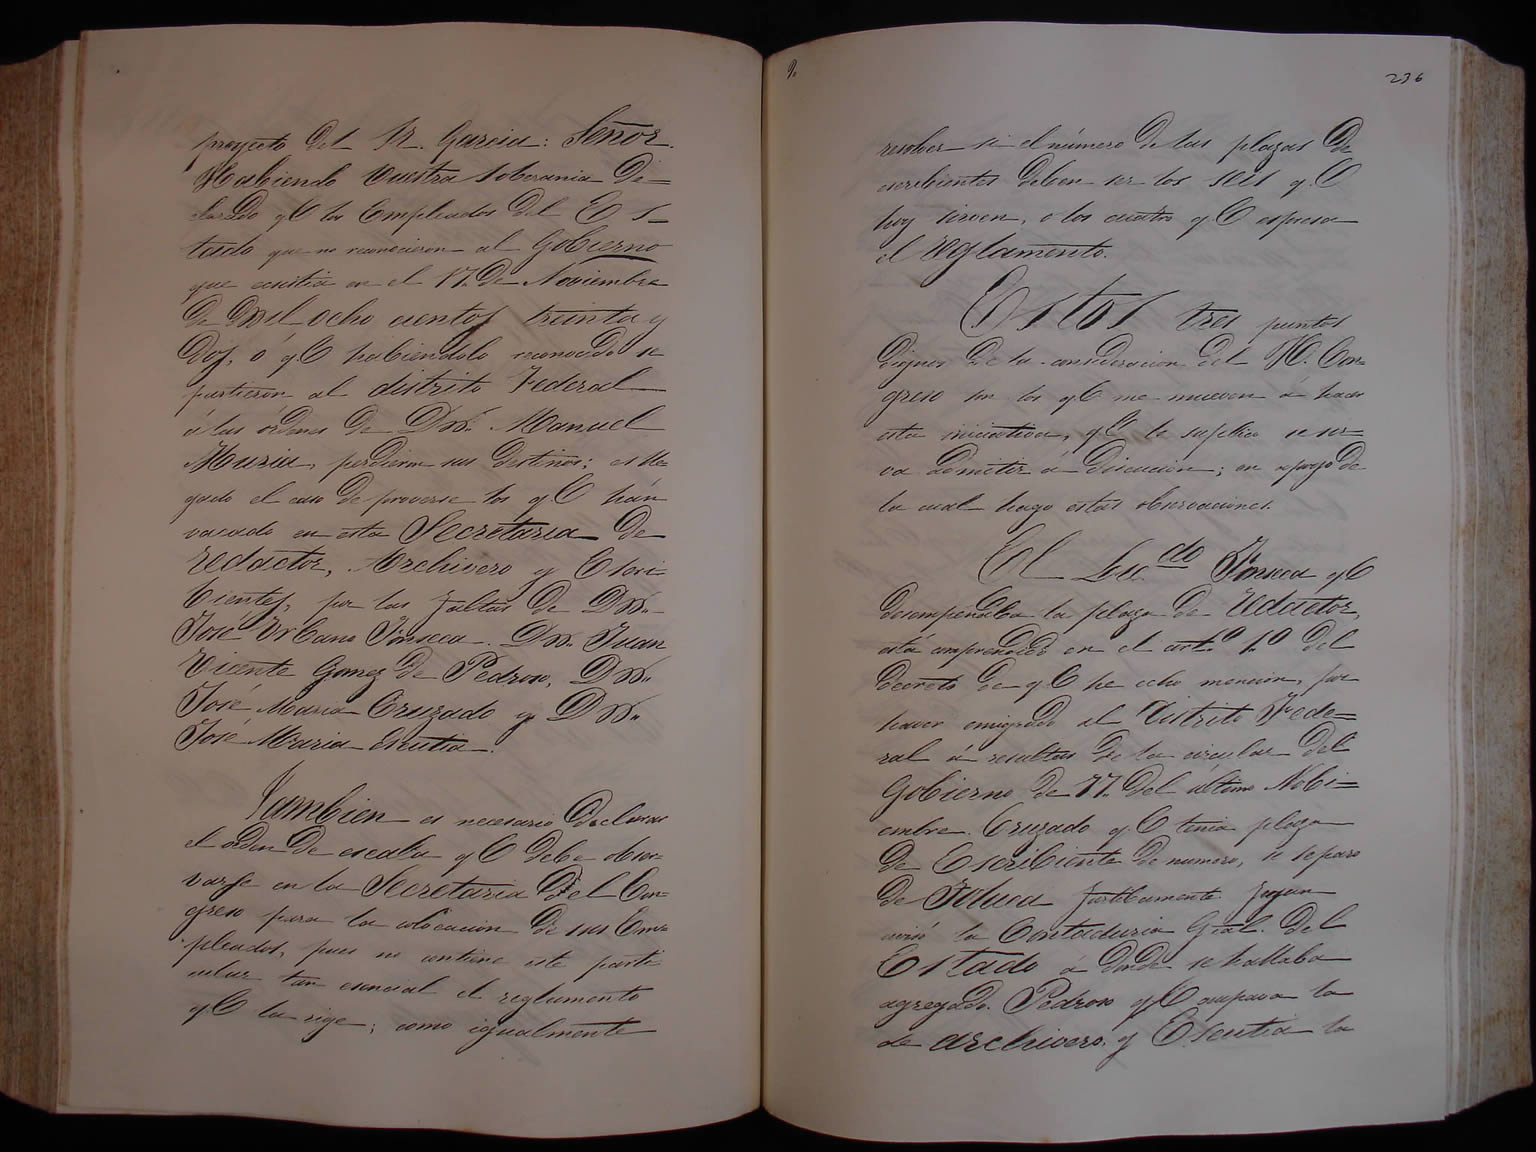 proyecto del Sr. Garcia: Señor.
Habiendo Vuestra Soberania De=
clarado q.e los Empleados del Es=
tado que no reconocieron al Gobierno
que ecsistia en el 17. de Noviembre
de mil ocho cientos treinta y
dos, ó q.e habiendolo reconocido se
partieron al distrito Federal
á las órdenes de Dn. Manuel
Muria, perdieron sus destinos; es lle=
gado el caso de proverse los q.e hán
vacado en esta Secretaria de
redactor, Archivero y Escri=
bientes, por las faltas de Dn.
José Urbano Fonseca. Dn. Juan
Vicente Gomez de Pedroso, Dn.
José Maria Cruzado y Dn.
José Maria
Tambien es necesario declarar
el orden de escala q.e debe obser=
varse en la Secretaria del Con=
greso para la colocacion de sus Em=
pleados, pues no contiene este parti
cular tan esencial el reglamento
q.e la rige; como igualmente
9.
236
resolver si el número de las plazas de
escribientes deben ser los seis q.e
hoy sirven, o los cuatro q.e espresa
el reglamento.
Estos tres puntos
dignos de la consideracion del H. Con=
greso son los q.e me mueven á hacer
esta iniciativa, q.e le suplico se sir=
va admitir á discucion; en apoyo de
la cual hago estas observaciones.
El Lic.do Fonseca q.e
desempeñaba la plaza de redactor,
está comprendido en el art.o 1.o del
decreto de q.e he echo mencion, por
haver emigrado al Distrito Fede=
ral á resultas de la circular del
Gobierno de 17. del último Nobi=
embre. Cruzado q.e tenia plaza
de Escribiente de numero, se separó
de Toluca furtibamente segun
avisó la Contaduria Gral. del
Estado á donde se hallaba
agregado. Pedroso q.e ocupava la
de archivero, y la